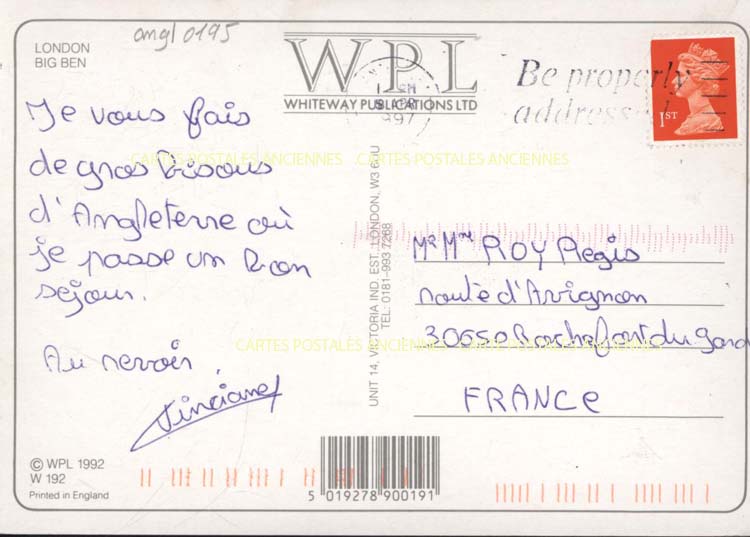 LONDON
BIG BEN
angl 0195
WPL
WHITEWAY PUBLICATIONS LTD
Be properly
addressed
1ST
Je vous fais
de gros bisous
d'Angleterre où
je passe un bon
sejour.
Au revoir
CARTES POSTALES ANCIENNES
CARTES POSTALES ANCIENNES
CARTES POSTALES ANCIENNES
CARTES POSTALES ANCIENNES
UNIT 14, VICTORIA IND. EST. LONDON, W3 6UU
TEL: 0181-993 7268
Mr Mme ROY Regis
route d'Avignon
30650 Rochefort du Gard
FRANCE
© WPL 1992
W 192
Printed in England
5 019278 900191